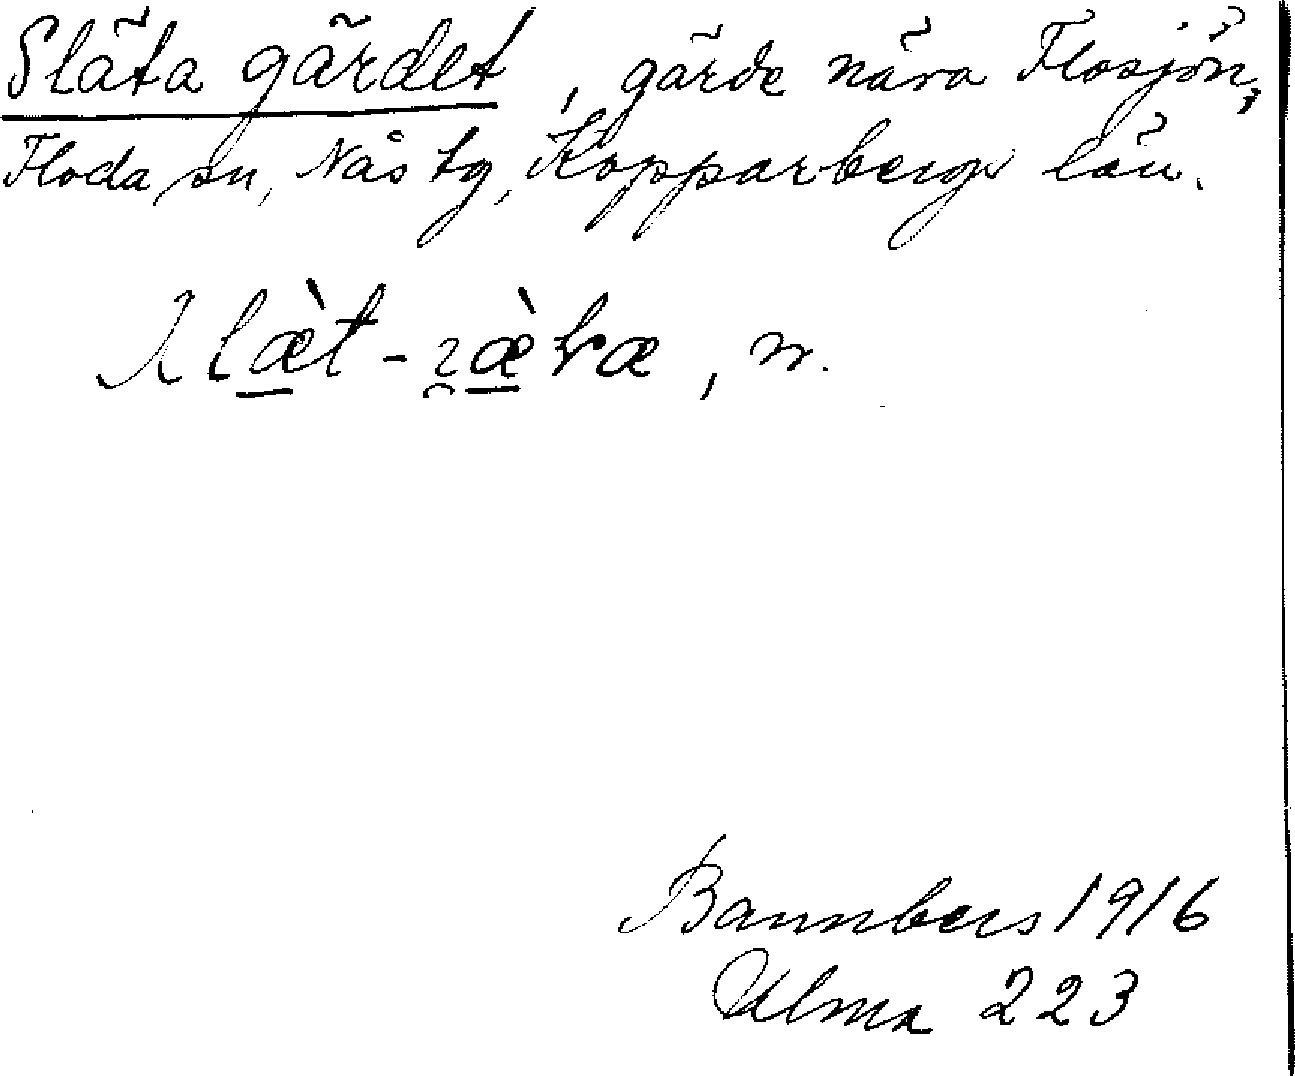 Släta gärdet, gärde nära Flosjön,
Floda sn, Nås tg, Kopparbergs län.
n.
Bannbers 1916
Ulma 223